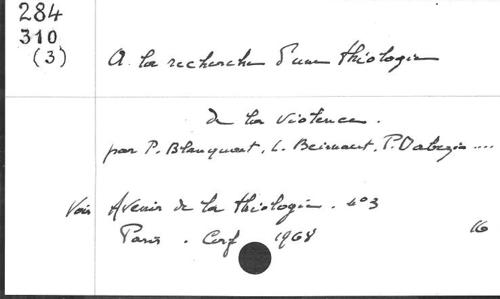 284
310
(3)
A la recherche d'une théologie
de la violence.
par P. Blanquart, L. Beirnaert, P. Dabezies ....
Voir Avenir de la théologie. no 3
Paris. Cerf 1968
16